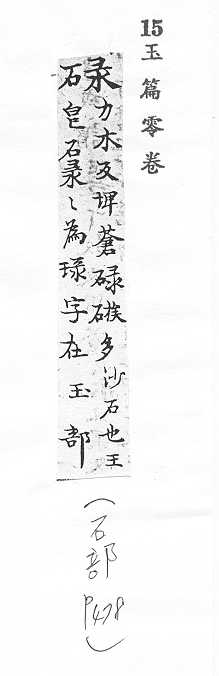 15 玉篇零卷
碌
力木反埤蒼碌多沙石也王
皃碌〻為琭字在玉部
(石部 P478)